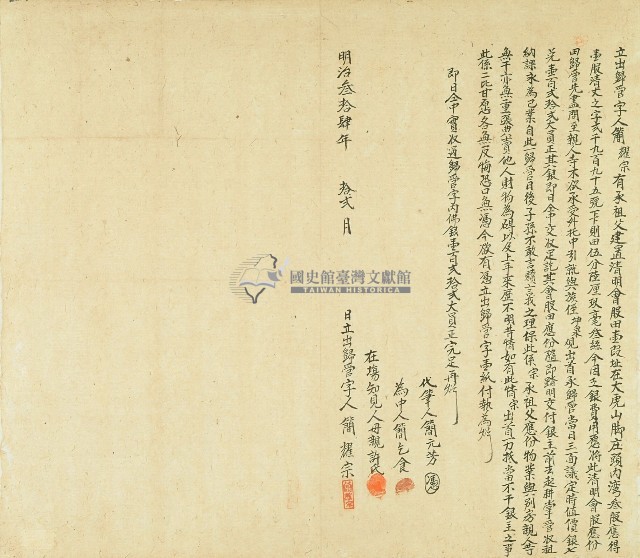 立出歸管字人簡耀宗有承祖父建置清明會股田壹段址在大虎山腳庄頭內灣叁股應得
壹股清丈之字弍千九百九十五號下則田伍分陸厘玖毫叁絲今因乏銀費用應將此清明會股應份
田歸管先盡問至親人等不欲承受外托中引就與族侄 出首承歸管當日三面議定時值價銀
壹百弍拾弍大員正其銀即日仝中交收足訖其會股田應份隨即踏明交付銀主前去起耕掌管收租
納課永為己業自此一歸管日後子孫不敢言贖言找之理保此係宗承祖父應份物業與別房親人等
無干亦無重張典賣他人財物為碍以及上手來歷不明等情如有此情宗出首一力抵當不干銀主之事
此係二比甘愿各無反悔恐口無憑今欲有憑立出歸管字壹紙付執為炤
即日仝中實收過歸管字內佛銀壹百弍拾弍大員正完足再炤
代筆人簡元芳
為中人簡乞食
在塲知見人母親許氏
明治叁拾肆年 拾弍月 日立出歸管字人簡耀宗
國史館臺灣文獻館
TAIWAN HISTORICA